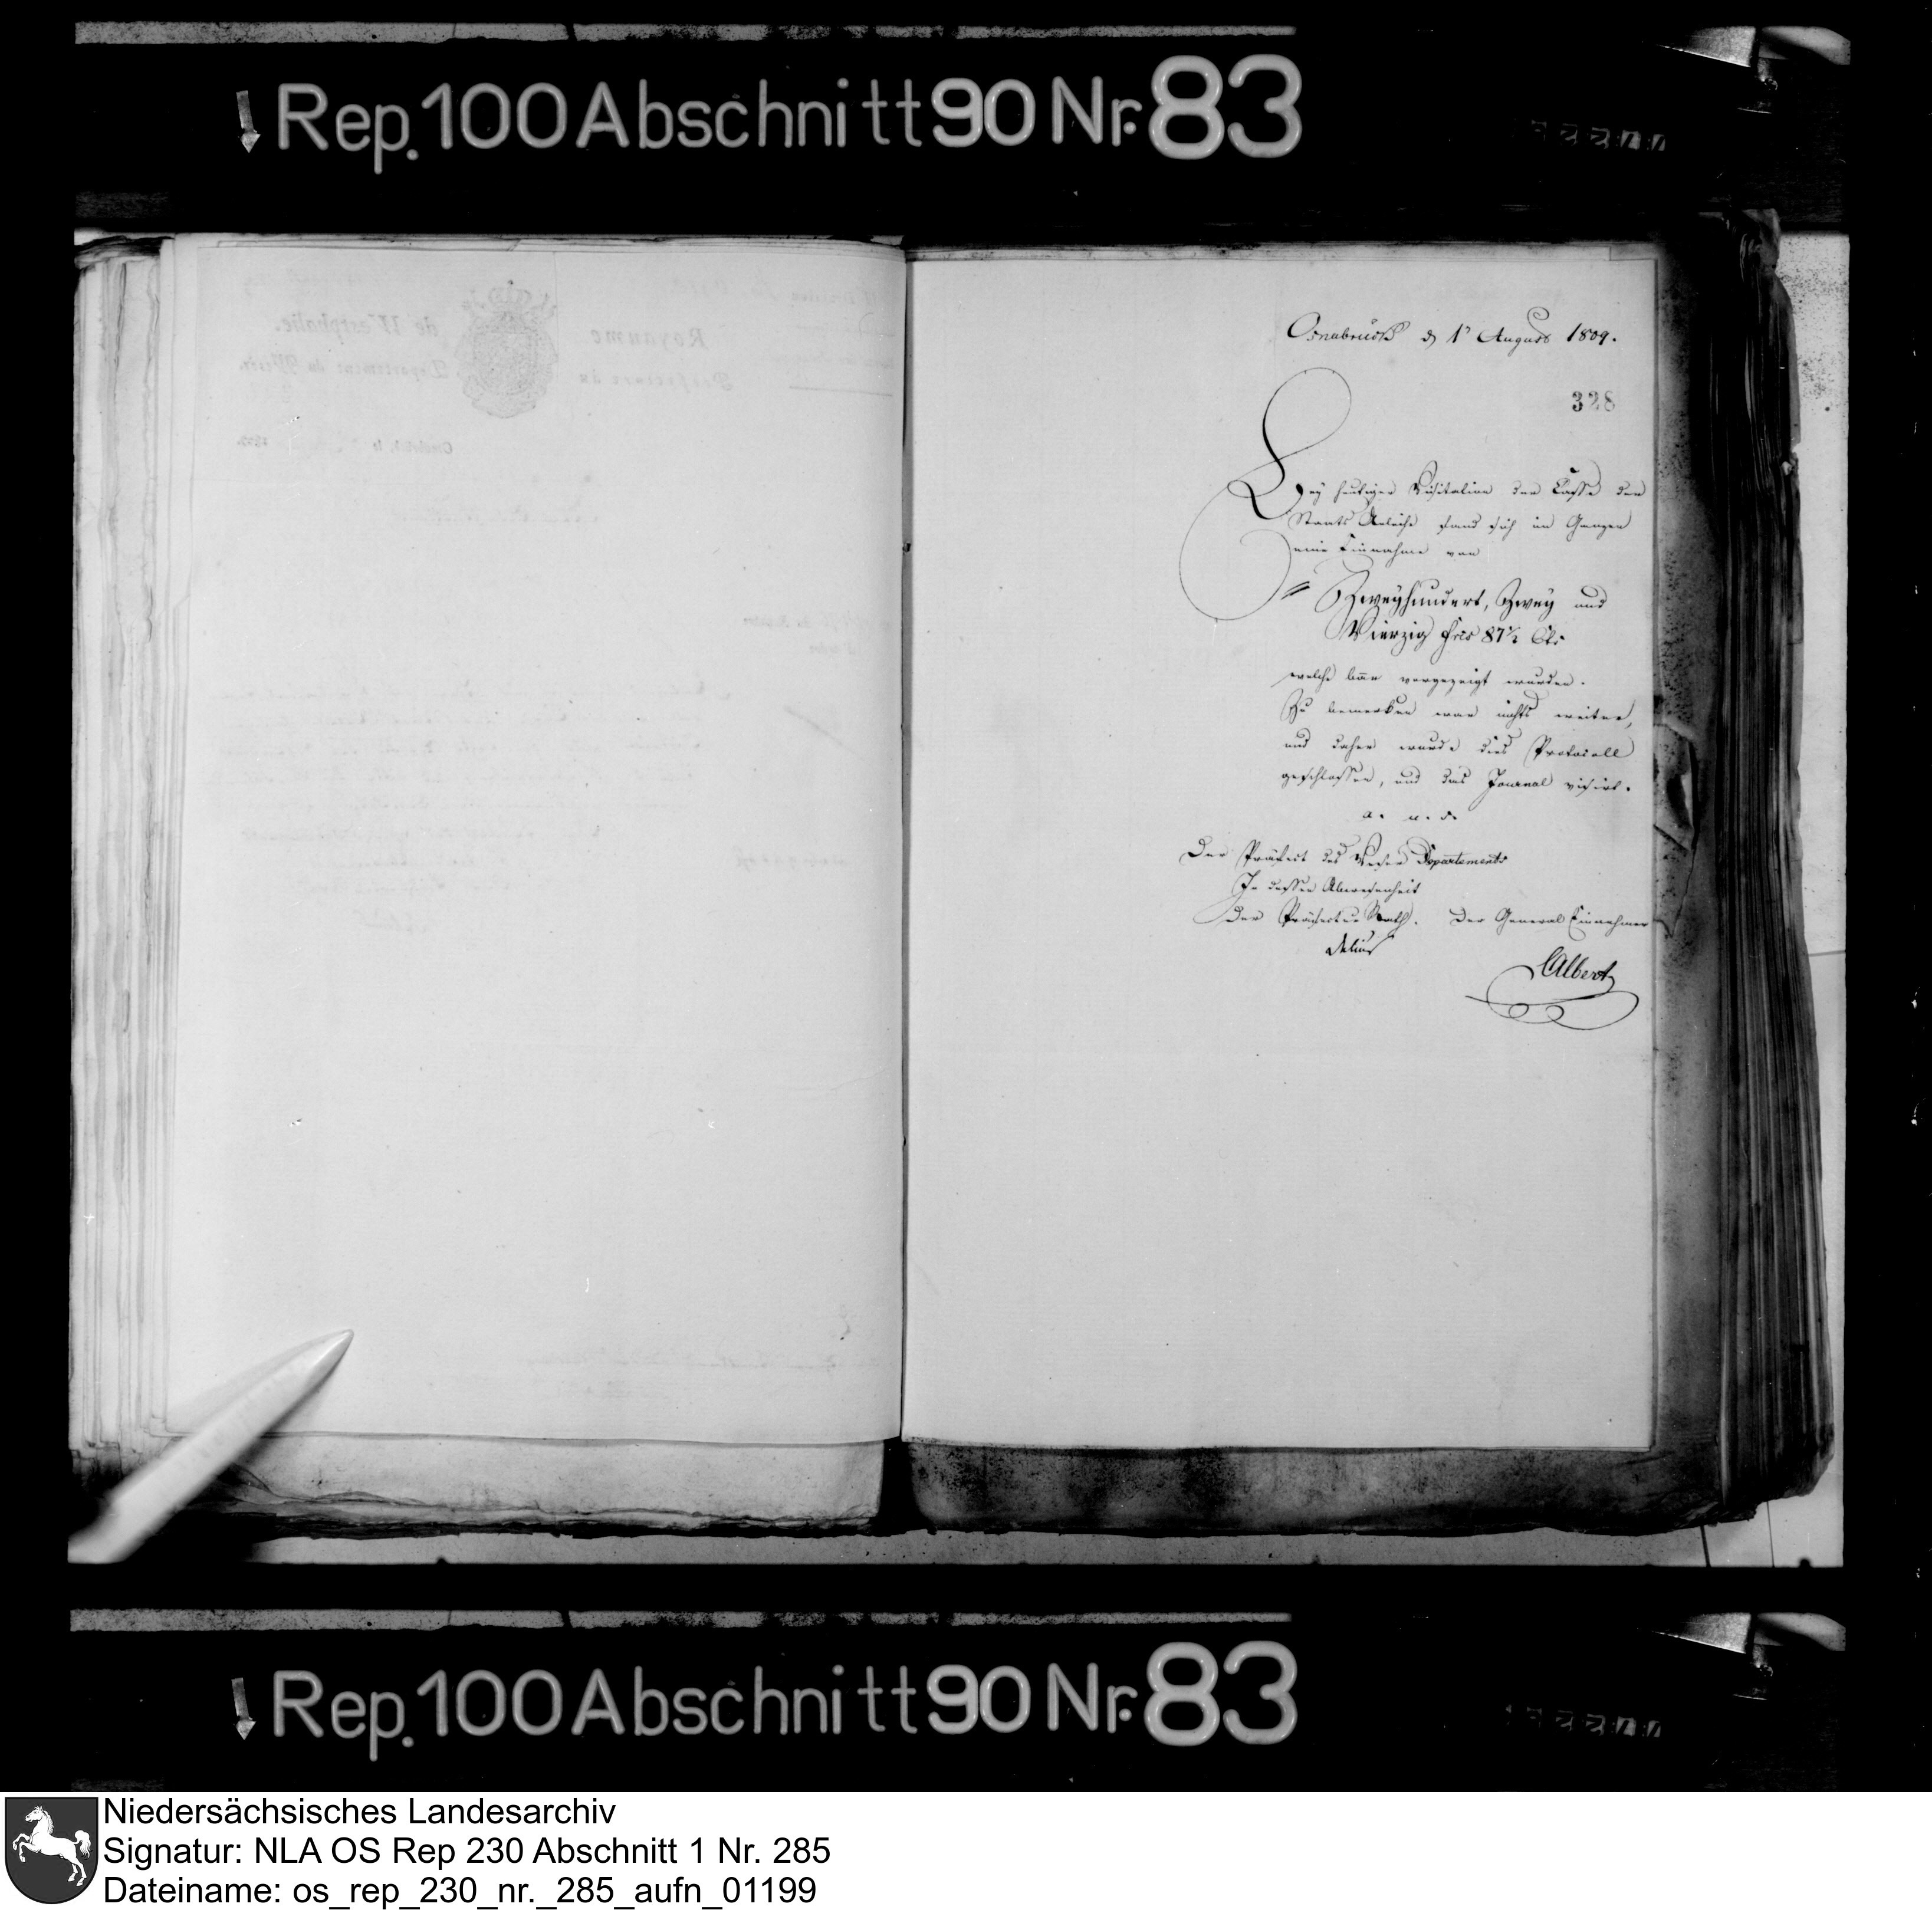 Rep. 100 Abschnitt 90 Nr. 83
Royaume de Westphalie.
Osnabrück d 1t August 1809.
328
Bey heutiger Visitation der Casse der
Staats Anleihe fand sich im Ganzen
eine Einnahme von
Zweyhundert, Zwey und
Vierzig Frcs 87½ Cts
welche baar vorgezeigt wurden.
Zu bemerken war nichts weiter,
und daher wurde dies Protocoll
geschlossen, und das Journal visirt.
a. u. s.
Der Präfect des Weser Departements
In dessen Abwesenheit
Der Präfectur Rath. Der General Einnehmer
Delius
Albert
Rep. 100 Abschnitt 90 Nr. 83
Niedersächsisches Landesarchiv
Signatur: NLA OS Rep 230 Abschnitt 1 Nr. 285
Dateiname: os_rep_230_nr._285_aufn_01199